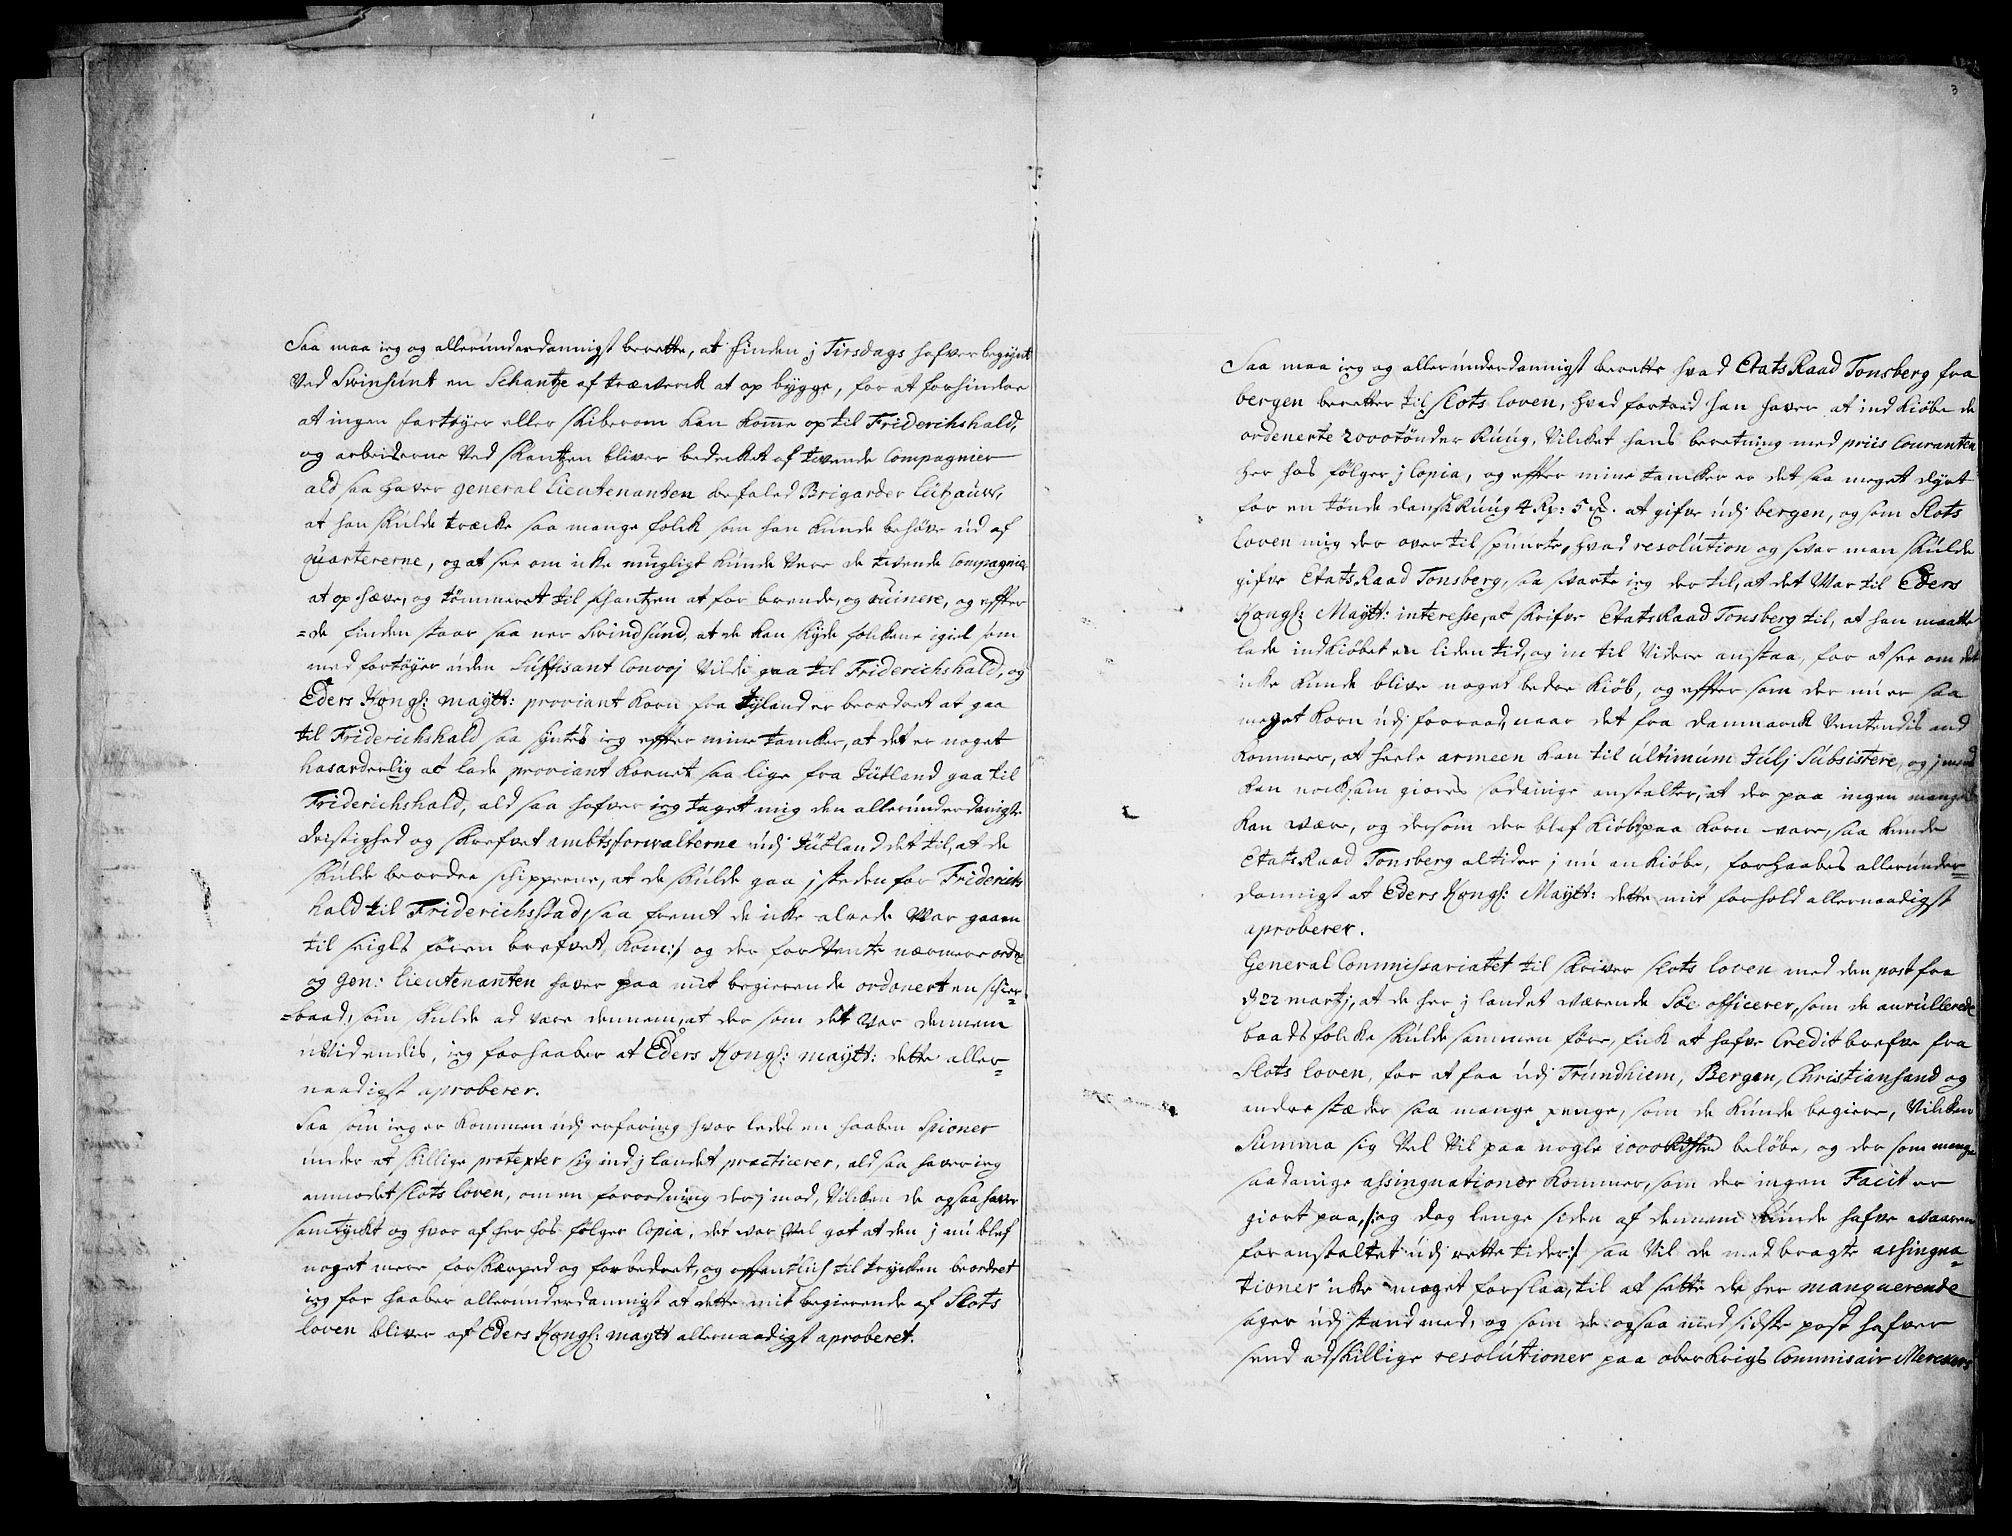 Saa maa ieg og allerúnderdannigst berette, at finden j Tirsdags hafver begÿnt
Ved Swinsúnt en Schantze af træwerck at op bÿgge, for at forhindre
at ingen fartøÿer eller skiberom kan kom̄e op til Friderichshald,
og arbeiderne Ved skantzen bliver bedecket af tvende Compagnier
ald saa haver general lieutenanten befaled Brigarder Lützauw,
at han skulde træcke saa mange folck som han kunde behøve ud af
quartererne, og at see om icke mugligt kúnde Vere de tvende Compagnier
at op hæve, og tømmeret til schantzen at for brende, og ruinere, og effter
=de finden staar saa ner Swindsúnd, at de kan skÿde folckene igiel som
med fartøÿer uden Súffisant Convoj Vilde gaa til Friderichshald, og
Eders Kongl: maÿtt: proviant korn fra Jÿland er beordret at gaa
til Friderichshald saa sÿntes ieg effter mine tancker, at det er noget
hasarderlig at lade proviant kornet saa lige fra Jútland gaa til
Friderichshald, ald saa hafver ieg taget mig den allerúnderdanigste
dristighed og skrefvet ambtsforwalterne udj Jútland det til, at de
skúlde beordre schipperne, at de skúlde gaa j steden for Friderichs
hald til Friderichsstad, saa fremt de icke alrede War gaaen
til seigls føren brefvet kom:/ og der forVente nærmere ordre
og Gen: lieutenanten haver paa mit begierende ordonert en schier=
=baad, som skúlde ad vare dennem, at der som det var dennem
uVidendis, ieg forhaaber at Eders Kongl: maÿtt: dette aller=
naadigst aproberer.
Saa som ieg er kommen udj erfaring hvor ledes en haaben Spioner
únder at skillige protexter sig ind j landet practicerer, ald saa haver ieg
anmodet slots loven, om en forordning der j mod, Vilcken de ogsaa haver
samtÿckt og hvor af her hos følger Copia, det war Vel gat at den j nú blef
noget mere forskærped og forbedret, og offentlich til trÿcken beordret
ieg for haaber allerúnderdannigst at dette mit begierende af Slots
loven bliver af Eders Kongl: maÿtt allernaadigst aproberet.
3
Saa maa ieg og allerúnderdannigst berette hvad EtatsRaad Tonsberg fra
bergen beretter til slots loven, hvad fortred han haver at ind kiøbe de
ordenerte 2000 tønder Ruúg, Vilcket hans beretning med priis Couranten
her hos følger j Copia, og effter mine tancker er det saa meget dÿrt
for en tønde dansk Ruúg 4 Rp: 5 at gifve udj bergen, og som Slots
loven mig der over til spuúrte, hvad resolútion og svar man skúlde
gifve EtatsRaad Tonsberg, saa svarte ieg der til, at det War til Eders
Kongl: Maÿtt: interesse, at skrifve EtatsRaad Tonsberg til, at han maatte
lade indkiøbet en liden tid, og in til Videre anstaa, for at see om det
icke kúnde blive noget bedre kiøb, og effter som der nú er saa
meget korn udj forraad, naar det fra danmarck Ventendis and
kommer, at heele armeen kan til últimúm Júlj Súbsistere, og j mid
kan nocksom giøres sodanige anstalter, at der paa ingen mangel
kan være, og dersom der blef kiøb paa korn vare, saa kúnde
EtatsRaad Tonsberg altider j nú ankiøbe, forhaabes allerúnder=
dannigst at Eders Kongl: Maÿtt: dette mit forhold allernaadigst
aproberer.
General Commissariatet til skriver slots loven med den post fra
dj 22 martj, at de her j landet værende Søe officerer, som de anrúllerede
baadsfolcke skúlde sammen føre, fick at hafve Creditbrefve fra
Slots loven, for at faa údj Trúndhiem, Bergen, Christiansand og
andre stæder saa mange penge, som de kúnde begiere, Vilcken
Summa sig Vel Vil paa nogle 1000 beløbe, og der som mange
saadanige assingnationer kommer, som der ingen Facit er
giort paa, /:og dog lenge siden af dennem kúnde hafve waaren
foranstaltet udj rette tider:/ saa Vil de medbragte assingna=
tioner icke noget forslaa, til at sette de her manquerende
sager udj stand med, og som de ogsaa med sidste post hafver
send adskillige resolútioner paa oberkrigs Commisair